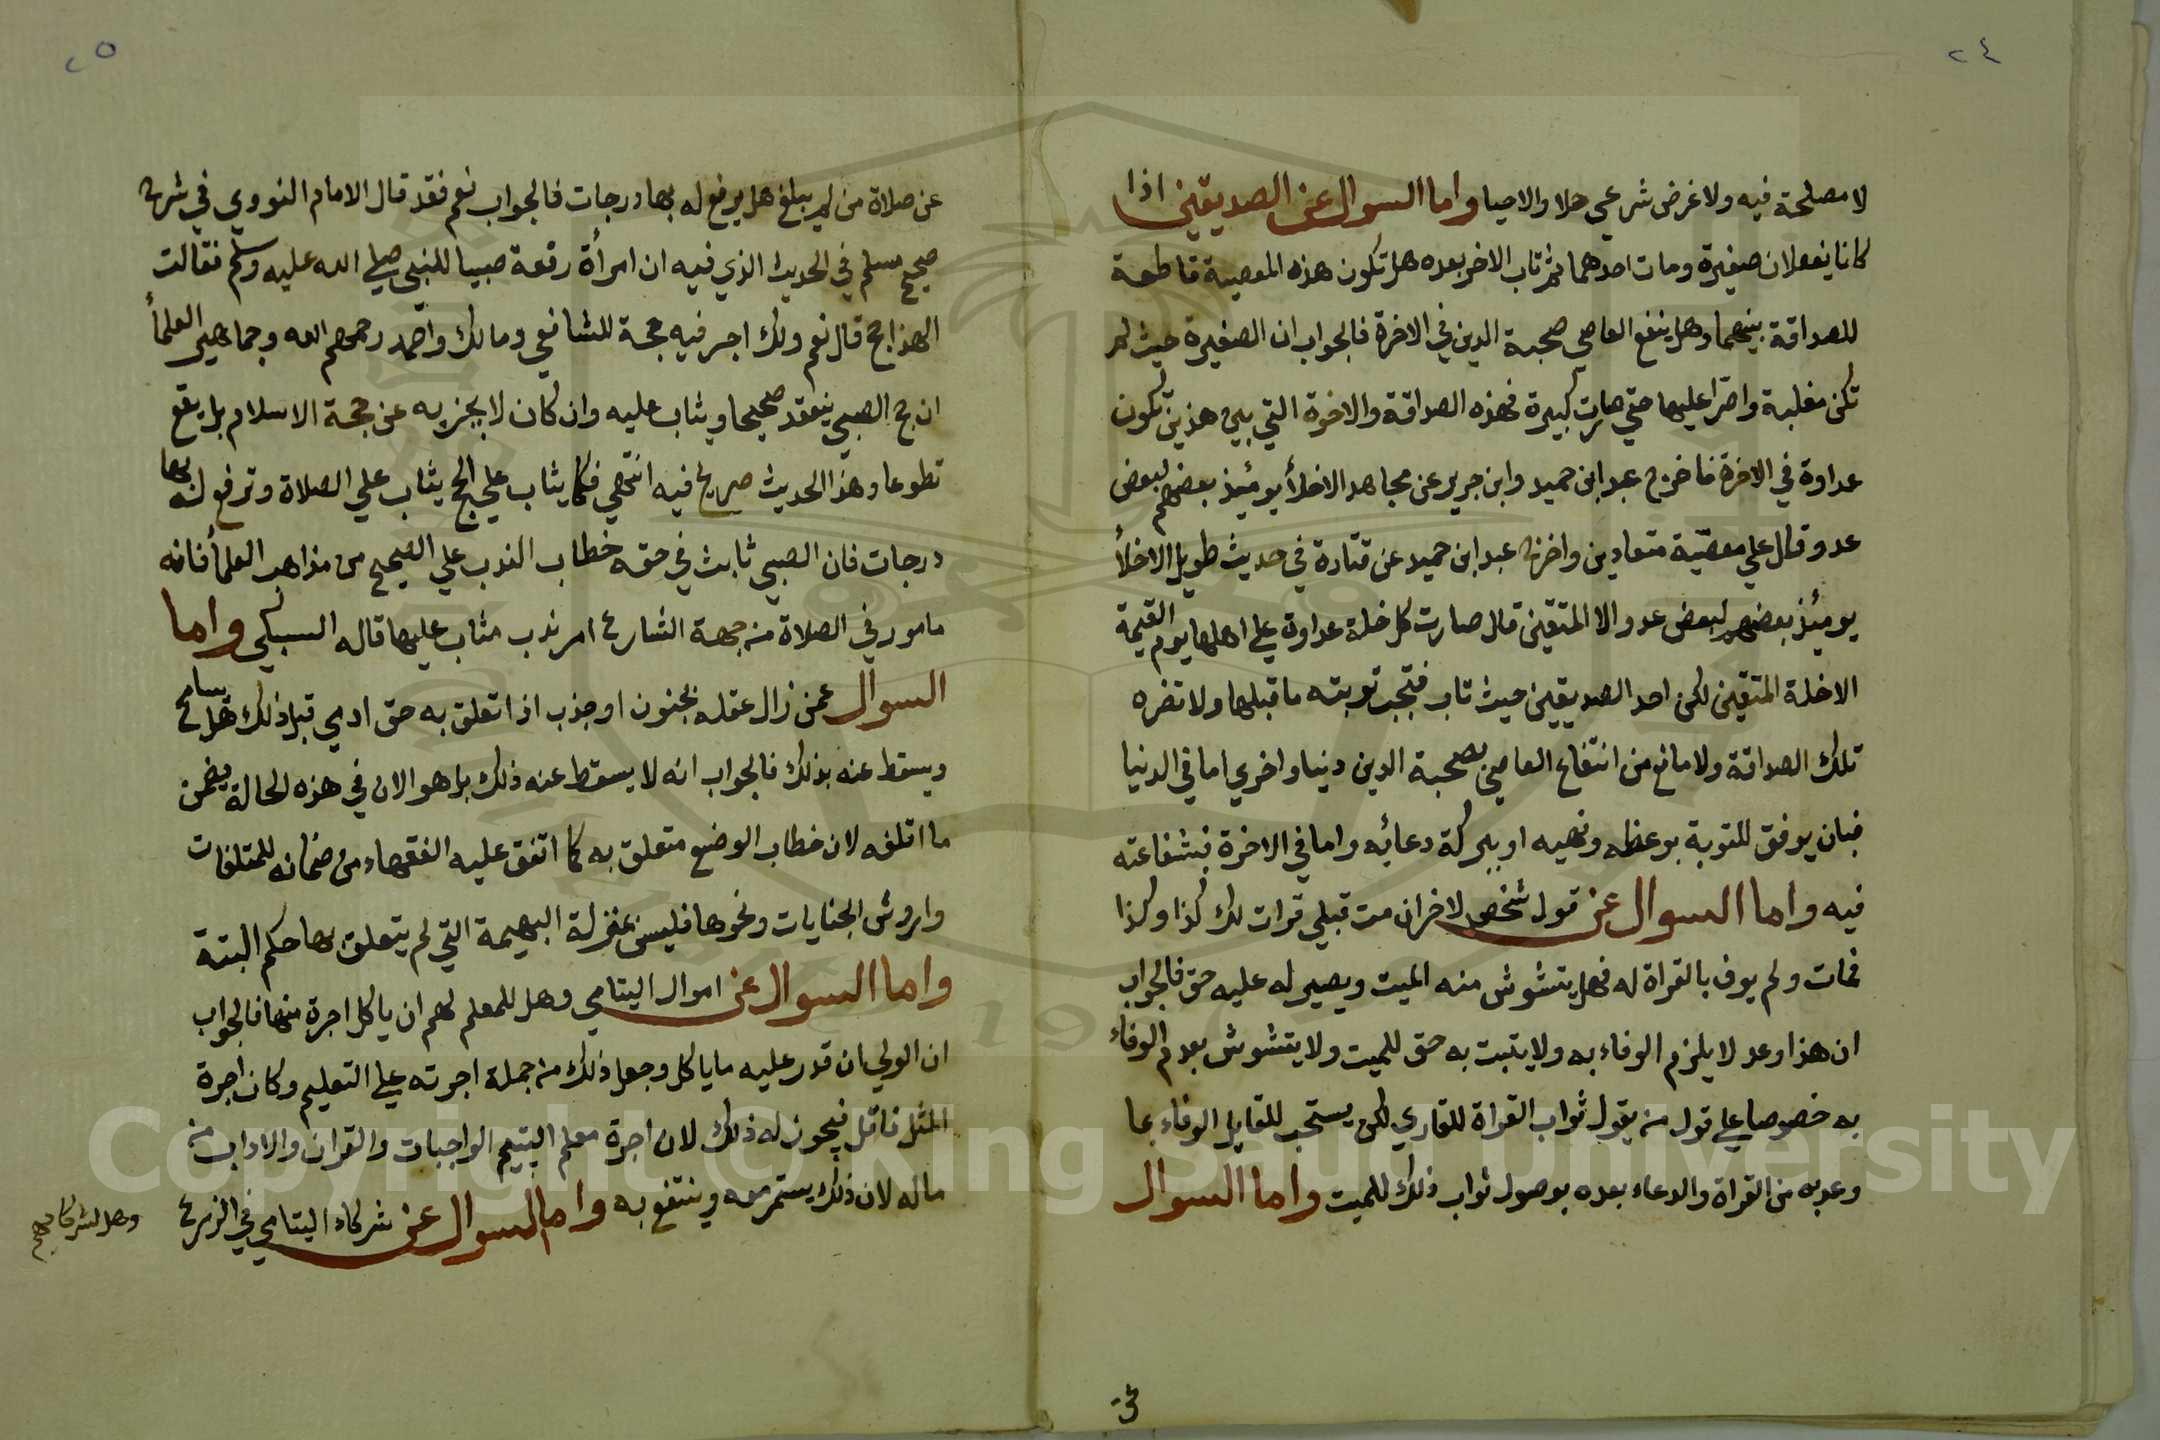 ٢٤
لا مصلحة فيه ولا غرض شرعي حلا والاحيا واما السوال عن الصديقين اذا
كانا يفعلان صغيرة ومات احدهما ثم تاب الاخر بعده هل تكون هذه المعصية قاطعة
للصداقة بينهما وهل ينفع العاصي صحبة الدين في الاخرة فالجواب ان الصغيرة حيث لم
تكن مغلبة واصرا عليها حتي صارت كبيرة فهذه الصداقة والاخوة التي بين هذين تكون
عداوة في الاخرة فاخرج عبد ابن حميد وابن جرير عن مجاهد الاخلأ يومئذ بعضهم لبعض
عدو قال علي معصية متعادين واخرج عبد ابن حميد عن قتادة في حديث طويل الاخلأ
يومئذ بعضهم لبعض عدو الا المتقين قال صارت كل خلة عداوة علي اهلها يوم القيمة
الاخلة المتقين لكن احد الصديقين حيث تاب فتجب توبته ما قبلها ولا تضره
تلك الصداقة ولا مانع من انتفاع العاصي بصحبة الدين دنيا واخري اما في الدنيا
فبان يوفق للتوبة بوعظه ونهيه او ببركة دعائه واما في الاخرة فبشفاعته
فيه واما السوال عن قول شخص لاخر ان مت قبلي قرات لك كذا وكذا
فمات ولم يوف بالقراة له فهل يتشوش منه الميت ويصير له عليه حق فالجواب
ان هذا وعد لا يلزم الوفاء به ولا يثبت به حق للميت ولا يتشوش بعدم الوفاء
به خصوصا علي قول من يقول ثواب القراة للقاري لكن يستحب للقايل الوفاء بما
وعد به من القراة والدعاء بعده بوصول ثواب ذلك للميت واما السوال
عن
٢٥
عن صلاة من لم يبلغ هل يرفع له بها درجات فالجواب نعم فقد قال الامام النووي في شرح
صحيح مسلم في الحديث الذي فيه ان امرأة رفعة صبيا للنبي صلي الله عليه وسلم فقالت
الهذا حج قال نعم ولك اجر فيه حجة للشافعي ومالك واحمد رحمهم الله وجماهير العلمأ
ان حج الصبي ينعقد صحيحا ويثاب عليه وان كان لا يجزيه عن حجة الاسلام بل يقع
تطوعا وهذا الحديث صريح فيه انتهي فكما يثاب علي الحج يثاب علي الصلاة وترفع له بها
درجات فان الصبي ثابت في حقه خطاب الندب علي الصحيح من مذاهب العلمأ فانه
مامور في الصلاة من جهة الشارع امر ندب مثاب عليها قاله السبكي واما
السوال عمن زال عقله بجنون او جذب اذا تعلق به حق ادمي قبل ذلك هل يسامح
ويسقط عنه بذلك فالجواب انه لا يسقط عنه ذلك بل هو الان في هذه لحالة يضمن
ما اتلفه لان خطاب الوضع متعلق به كما اتفق عليه الفقهاء من ضمانه للمتلفات
واروش الجنايات ونحوها فليس بمنزلة البهيمة التي لم يتعلق بها حكم البتة
واما السوال عن اموال اليتامي وهل للمعلم لهم ان ياكل اجرة منها فالجواب
ان الولي ان قدر عليه ما ياكل وجعل ذلك من جملة اجرته علي التعليم وكان اجرة
المثل فاقل فيجوز له ذلك لان اجرة معلم اليتيم الواجبات والقران والاداب من
ماله لان ذلك يستمر معه وينتفع به واما السوال عن شركاء اليتامي في الزرع
وهل لشركايهم
Copyright © King Saud University